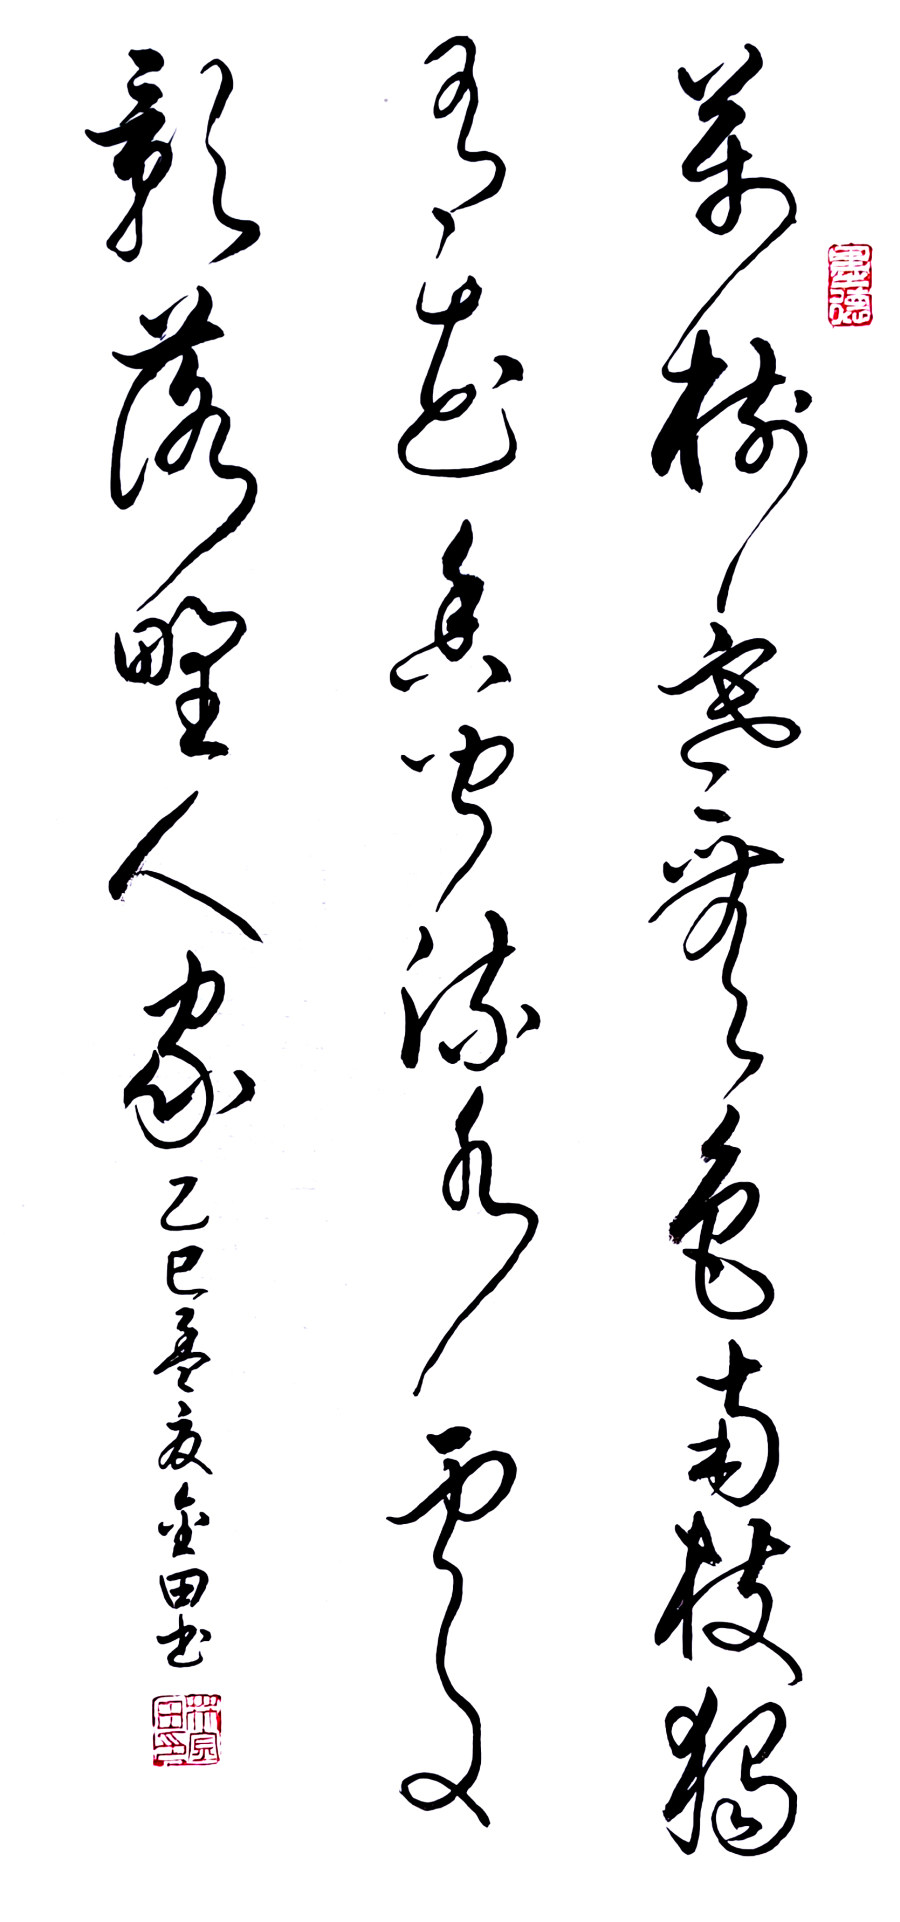 萬樹寒無色南枝獨
有花香聞流水處
影落野人家
乙巳孟夏金田書